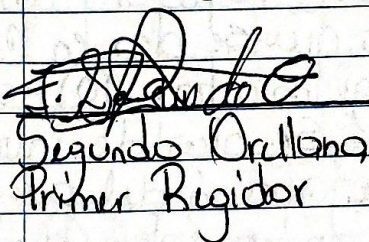 Segundo Orellana
Primer Regidor